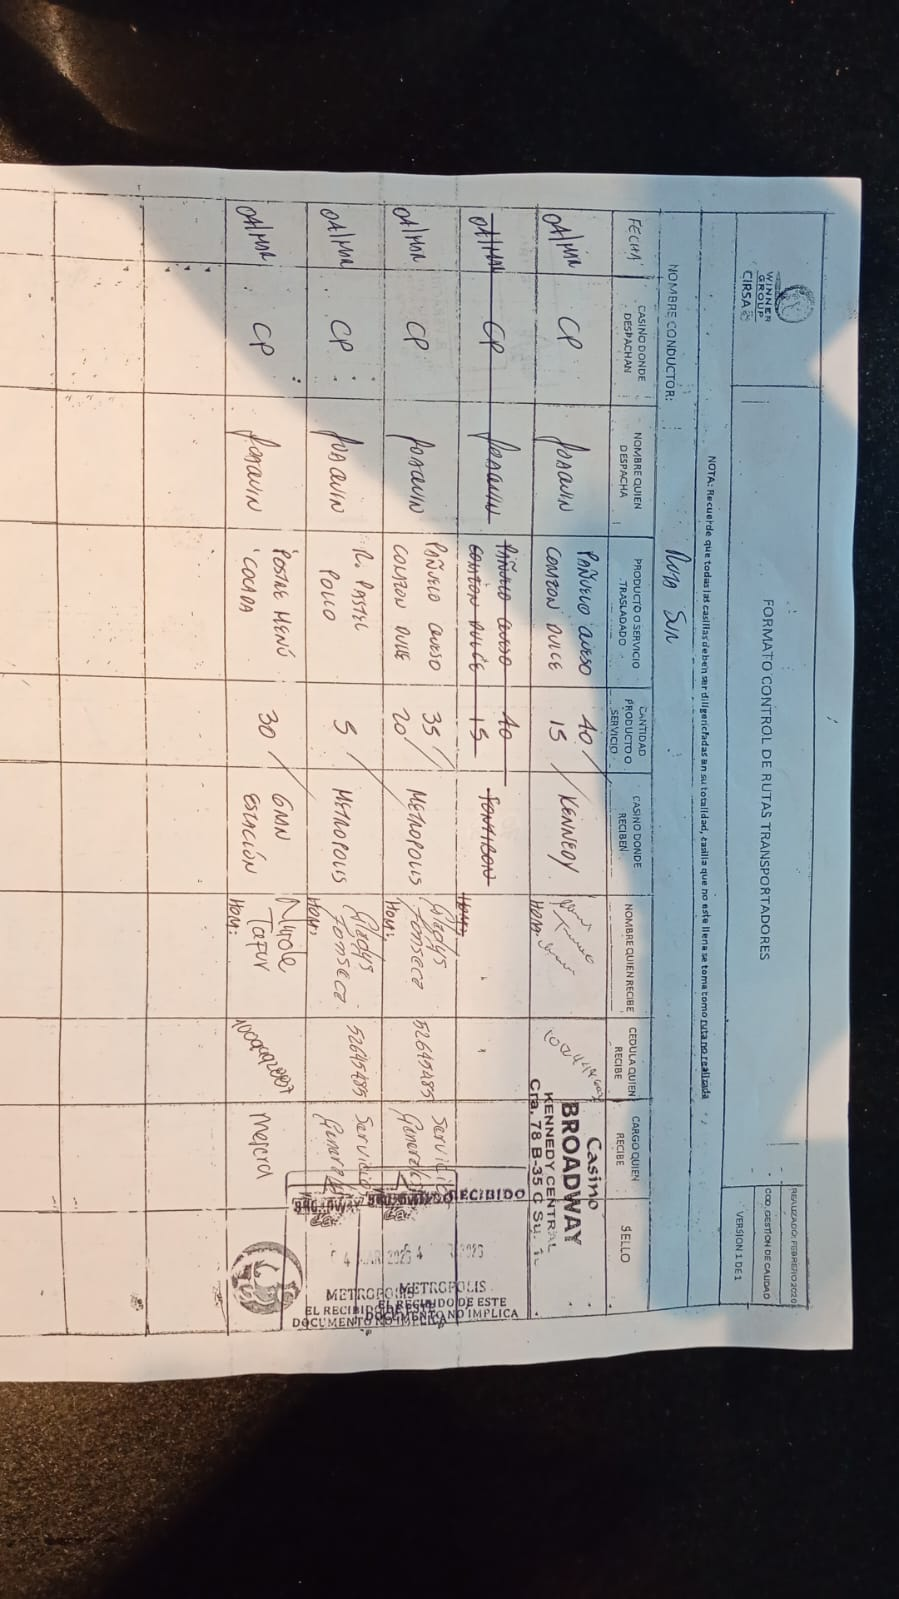 WINNER
GROUP
CIRSA
FORMATO CONTROL DE RUTAS TRANSPORTADORES
REALIZADO: FEBRERO 2020
COD. GESTION DE CALIDAD
VERSION 1 DE 1
NOTA: Recuerde que todas las casillas deben ser diligenciadas en su totalidad, casilla que no este llena se toma como ruta no realizada
NOMBRE CONDUCTOR: Ruta Sur
FECHA
CASINO DONDE DESPACHAN
NOMBRE QUIEN DESPACHA
PRODUCTO O SERVICIO TRASLADADO
CANTIDAD PRODUCTO O SERVICIO
CASINO DONDE RECIBEN
NOMBRE QUIEN RECIBE
CEDULA QUIEN RECIBE
CARGO QUIEN RECIBE
SELLO
04/MAR CP JOAQUIN PAÑUELO QUESO 40 / KENNEDY
CORAZON DULCE 15 HORA:
Casino
BROADWAY
KENNEDY CENTRAL
Cra. 78 B-35 C Su.
04/MAR CP JOAQUIN PAÑUELO QUESO 40 FONTIBON
CORAZON DULCE 15 HORA:
04/MAR CP JOAQUIN PAÑUELO QUESO 35 / METROPOLIS Gladys Fonseca 52645485 Servicio Generales
CORAZON DULCE 20 HORA:
RECIBIDO
METROPOLIS
EL RECIBIDO DE ESTE
DOCUMENTO NO IMPLICA
04/MAR CP JOAQUIN R. PASTEL POLLO 5 / METROPOLIS Gladys Fonseca 52645485 Servicio Generales
HORA:
METROPOLIS
EL RECIBIDO
DOCUMENTO NO IMPLICA
04/MAR CP JOAQUIN POSTRE MENÚ COCADA 30 / GRAN ESTACIÓN Tafur Mesera
HORA: